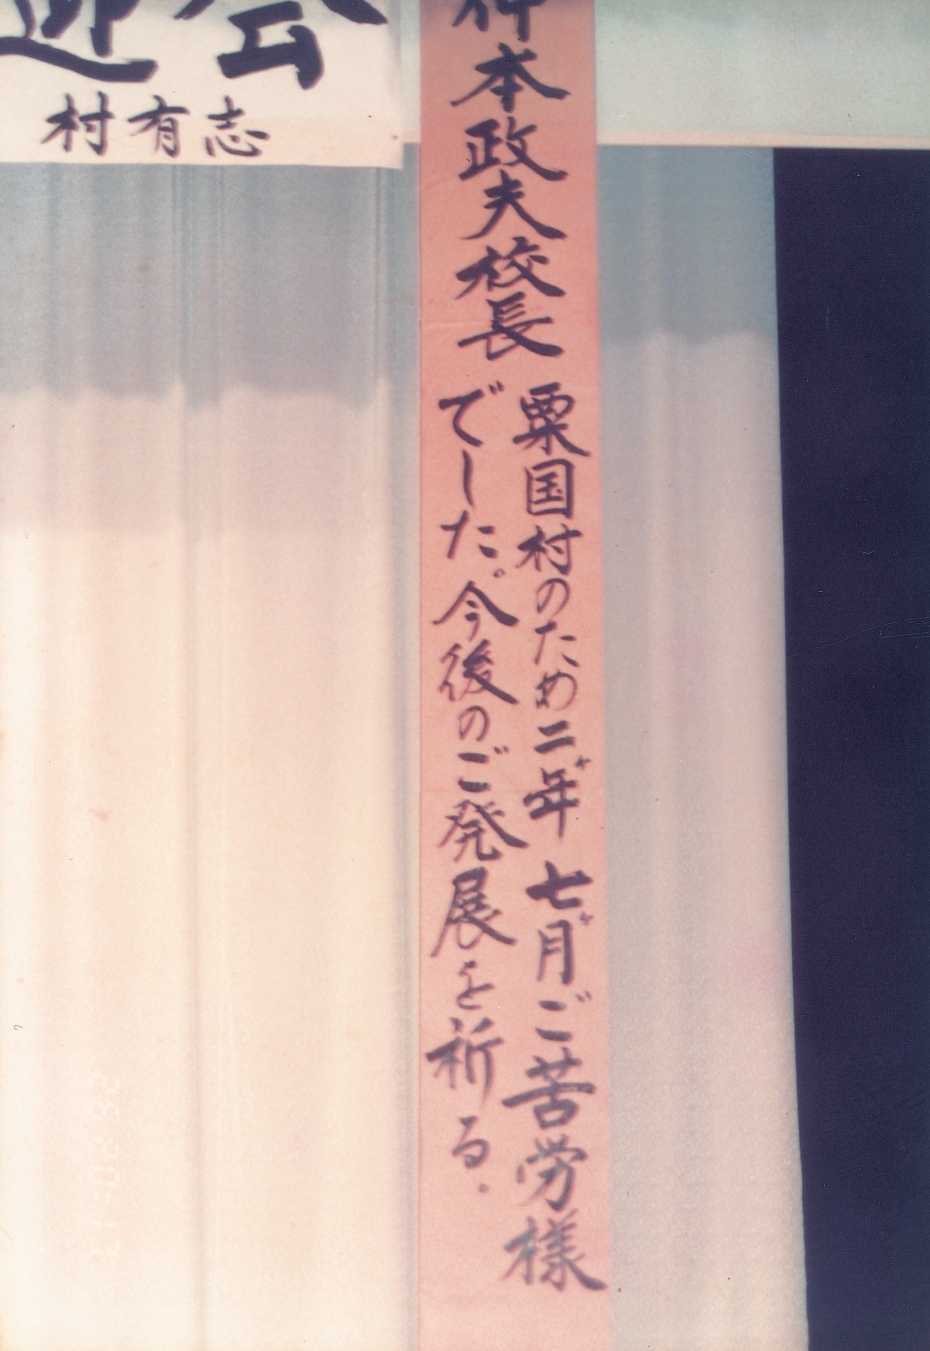 迎会
村有志
本政夫校長
粟国村のため二ヶ年七ヶ月ご苦労様
でした。今後のご発展を祈る。